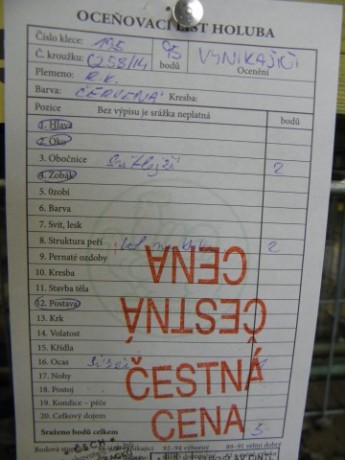 OCEŇOVACÍ LIST HOLUBA
Číslo klece: 195
95 bodů
VYNIKAJÍCÍ
Ocenění
Č. kroužku: C258/14
Plemeno: R.K.
Barva: ČERVENÁ Kresba:
Pozice Bez výpisu je srážka neplatná bodů
1. Hlava
2. Oko
3. Obočnice Světlejší 2
4. Zobák
5. Ozobí
6. Barva
7. Svit, lesk
8. Struktura peří 2
9. Pernaté ozdoby
10. Kresba
11. Stavba těla
12. Postava
13. Krk
14. Volatost
15. Křídla
16. Ocas
17. Nohy
18. Postoj
19. Kondice – péče
20. Celkový dojem
Sraženo bodů celkem 5
ČESTNÁ
CENA
ČESTNÁ
CENA